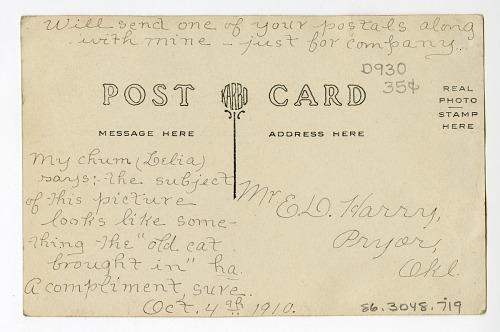 Will send one of your postals along
with mine - just for company.
D930
35¢
POST CARD
KARBO
REAL
PHOTO
STAMP
HERE
MESSAGE HERE
ADDRESS HERE
My chum (Lelia)
says:- the subject
of this picture
looks like some-
thing the "old cat
brought in" ha.
A compliment, sure.
Oct. 4 th 1910.
Mr. E. D. Harry,
Pryor,
Okl.
86.3048.719